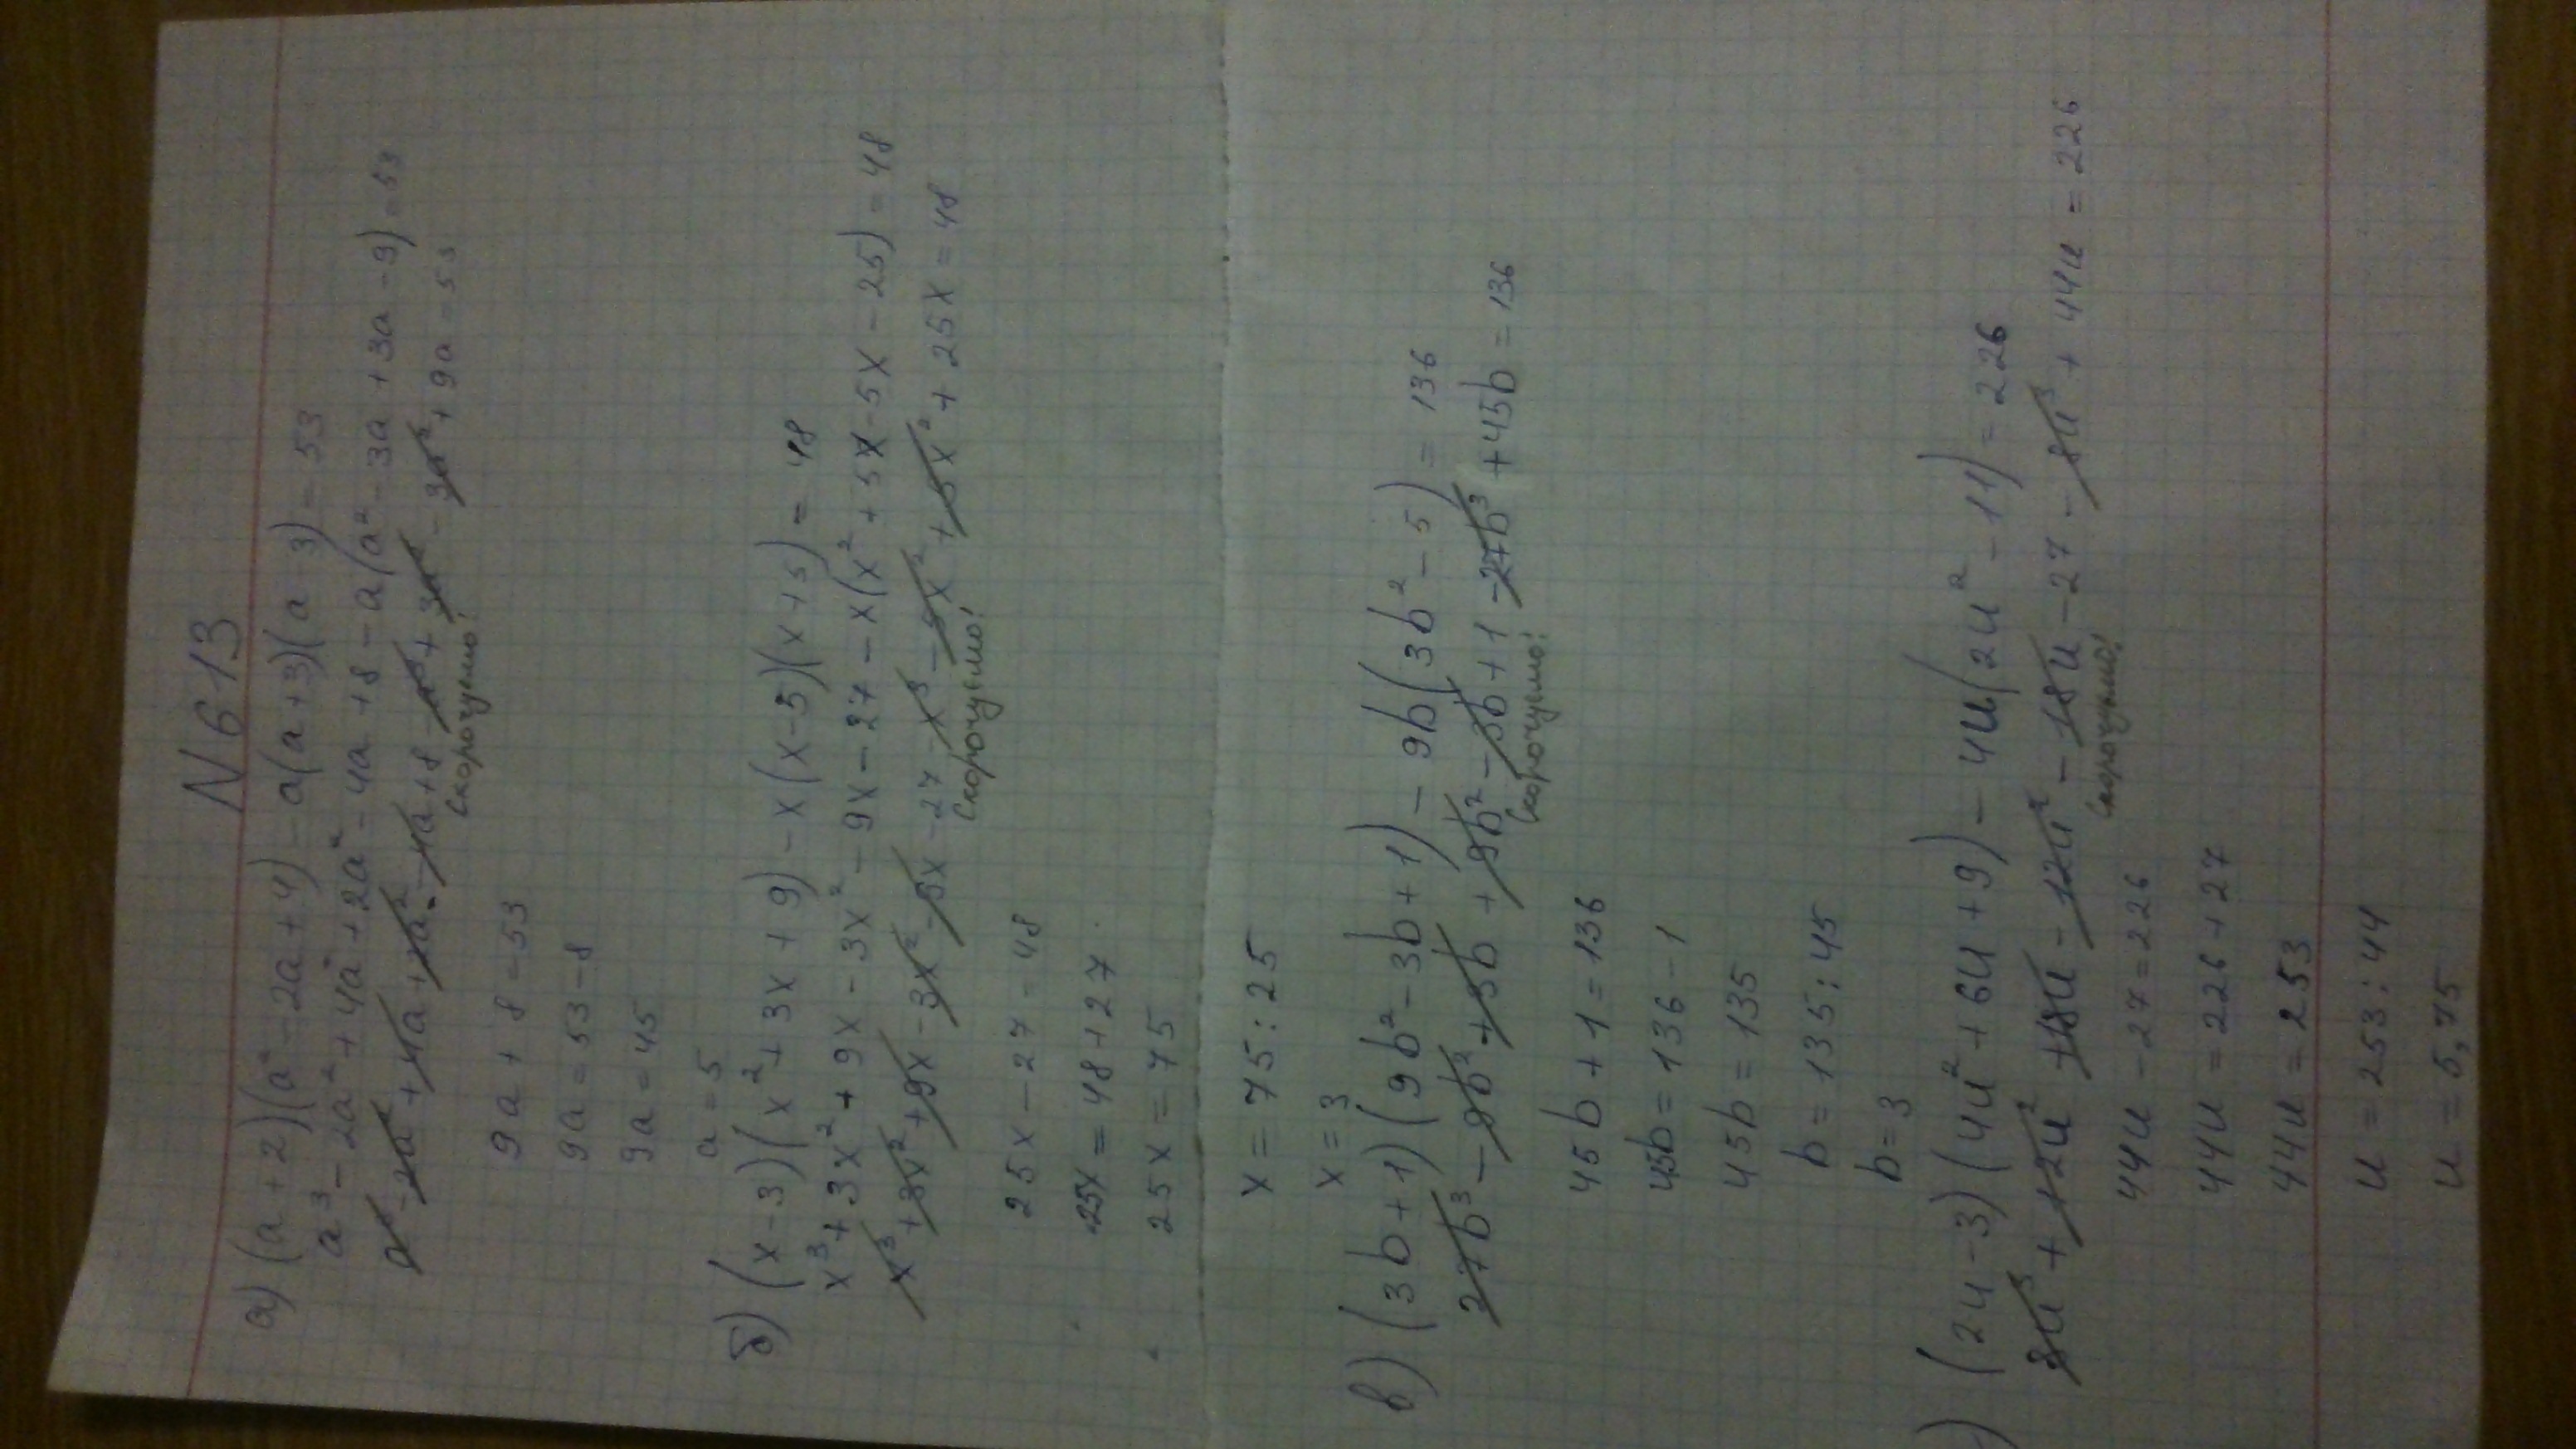 N 613
а) (a+2)(a²-2a+4)-a(a+3)(a-3)=53
a³-2a²+4a+2a²-4a+8-a(a²-3a+3a-9)=53
a³-2a²+4a+2a²-4a+8-a³+3a²-3a²+9a=53
Скорочуємо!
9a+8=53
9a=53-8
9a=45
a=5
б) (x-3)(x²+3x+9)-x(x-5)(x+5)=48
x³+3x²+9x-3x²-9x-27-x(x²+5x-5x-25)=48
x³+3x²+9x-3x²-9x-27-x³-5x²+5x²+25x=48
Скорочуємо!
25x-27=48
25x=48+27
25x=75
x=75:25
x=3
в) (3b+1)(9b²-3b+1)-9b(3b²-5)=136
27b³-9b²+3b+9b²-3b+1-27b³+45b=136
Скорочуємо!
45b+1=136
45b=136-1
45b=135
b=135:45
b=3
) (2u-3)(4u²+6u+9)-4u(2u²-11)=226
8u³+12u²+18u-12u²-18u-27-8u³+44u=226
Скорочуємо!
44u-27=226
44u=226+27
44u=253
u=253:44
u=5,75